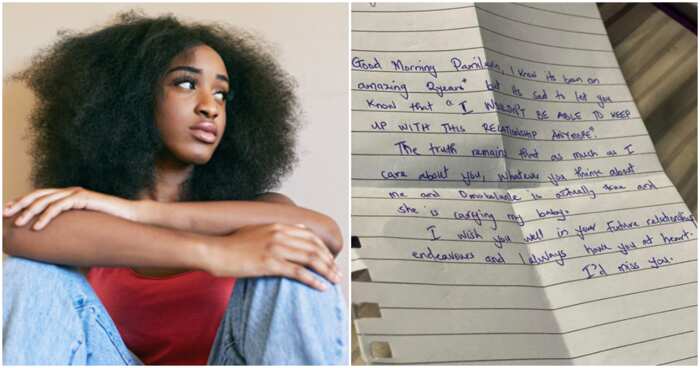 Good Morning Damilola, I know its been an
amazing 2years" but its sad to let you
know that "I WOULDN'T BE ABLE TO KEEP
UP WITH THIS RELATIONSHIP ANYMORE".
The truth remains that as much as I
care about you, whatever you think about
me and Omobolanle is actually true and
she is carrying my baby.
I wish you well in your future relationship
endeavours and I always have you at heart.
I'd miss you.